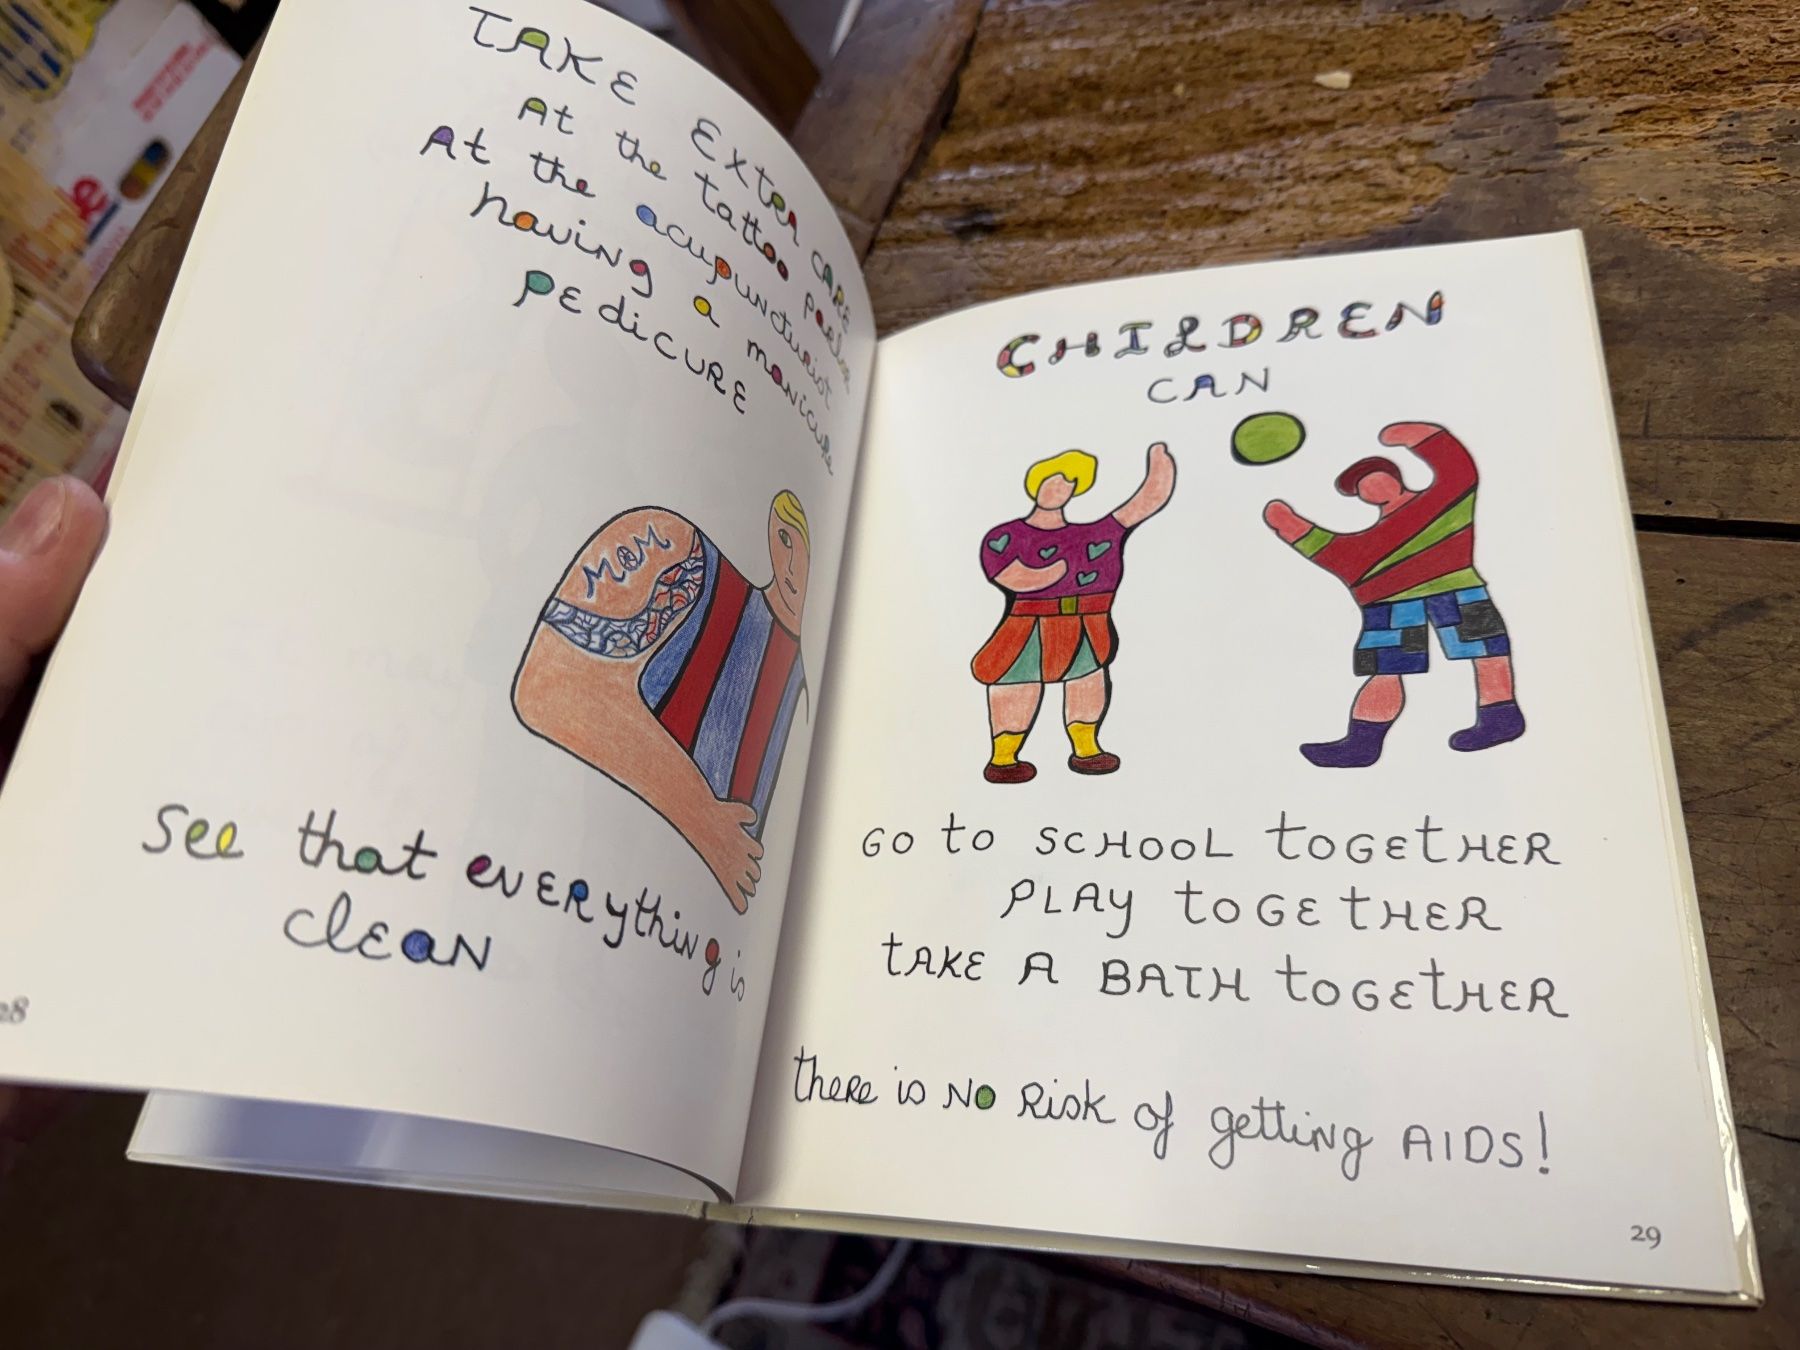 TAKE EXTRA CARE
At the tattoo parlor
At the acupuncturist
having a manicure
PEDICURE
MOM
See that everything is
clean
28
CHILDREN
CAN
GO to SCHOOL toGEtHER
PLAY toGEtHER
tAKE A BATH toGEtHER
there is NO Risk of getting AIDS!
29